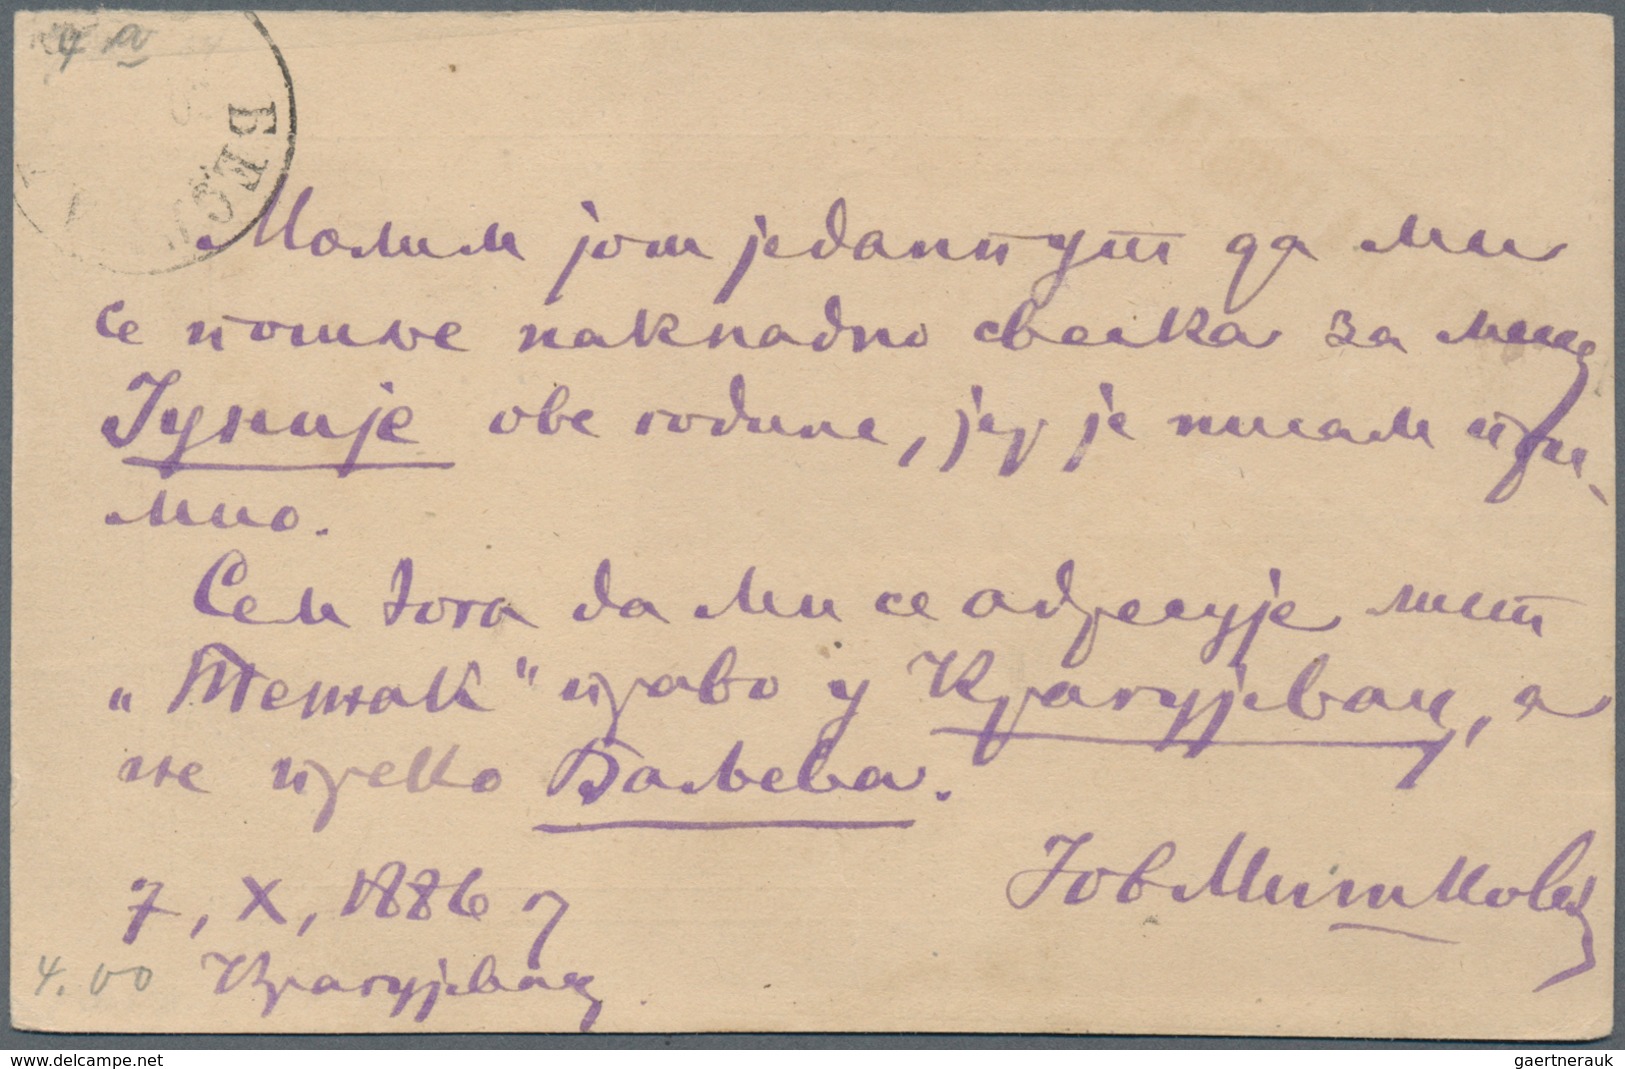 4 a
БЕО
Молим још једанпут да ми
се пошље накнадно свеска за месец
Јуније ове године, јер је нисам при-
мио.
Сем тога да ми се адресује лист
„Тежак“ право у Крагујевац, а
не преко Ваљева.
Јов. Митковић
7, X, 1886 г
4.00 Крагујевац
www.delcampe.net
gaertnerauk